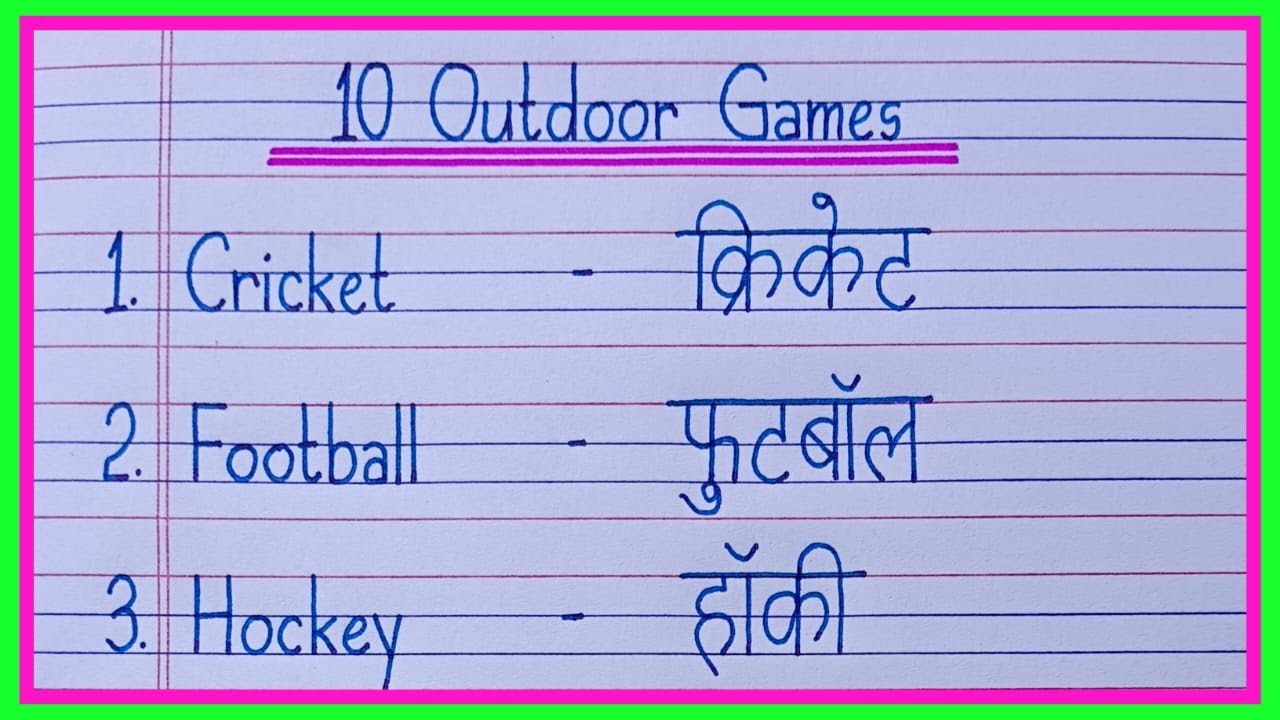 10 Outdoor Games
1. Cricket - क्रिकेट
2. Football - फुटबॉल
3. Hockey - हॉकी